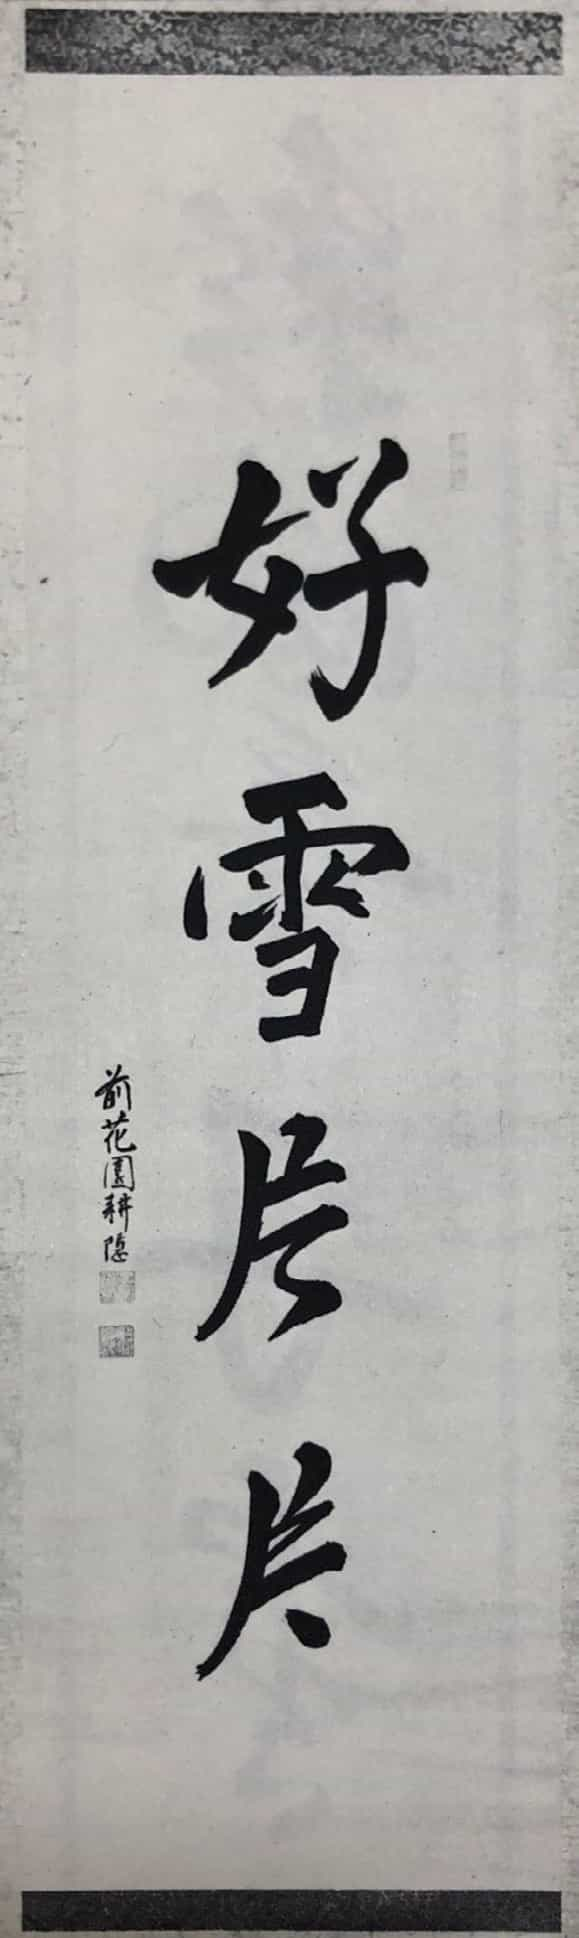 好雪片片
前花園耕隠